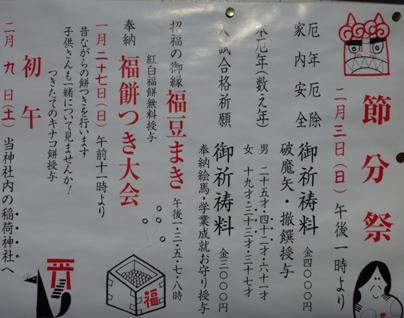 節分祭
二月三日（日）午後一時より
厄年厄除
家内安全
御祈祷料 金四〇〇〇円
破魔矢・撤饌授与
本厄年（数え年）
男 二十五才・四十二才・六十一才
女 十九才・三十三才・三十七才
試合格祈願
御祈祷料 金三〇〇〇円
奉納絵馬・学業成就お守り授与
招福の御縁 福豆まき 午後一・三・五・七・八時
紅白福餅無料授与
奉納 福餅つき大会
一月二十七日（日）午前十一時より
昔ながらの餅つきを行います
子供さんも一緒について見ませんか！
つきたてのキナコ餅授与
初午
二月九日（土）当神社内の稲荷神社へ
福